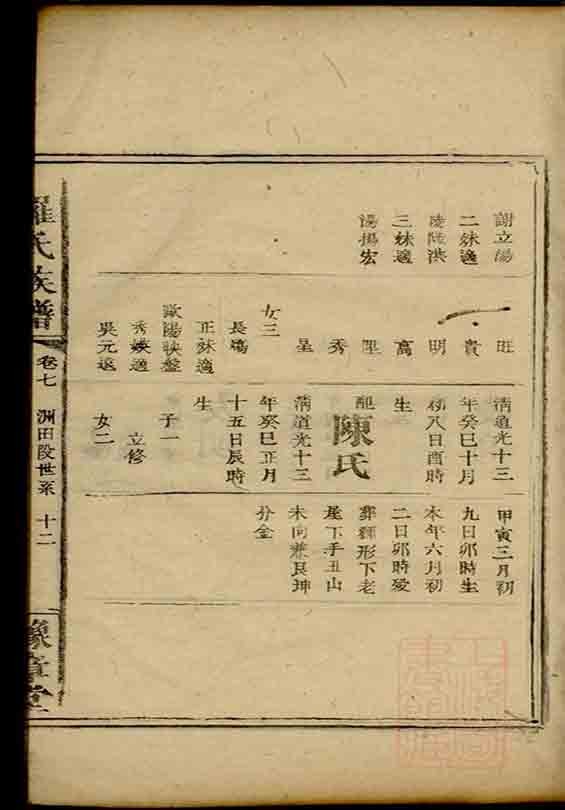 謝立陽
二妹適
陵陞洪
三妹適
湯揚宏
旺
貴
明
高
陞
秀
呈
女三
長塲
正妹適
歐陽映盤
秀妹適
吳元遠
清道光十三
年癸巳十月
初八日酉時
生
配
陳氏
清道光十三
年癸巳正月
十五日辰時
生
子一
立修
女二
甲寅三月初
九日卯時生
本年六月初
二日卯時歿
葬獅形下老
屋下手丑山
未向兼艮坤
分金
羅氏族譜
卷七
洲田段世系
十二
豫章堂